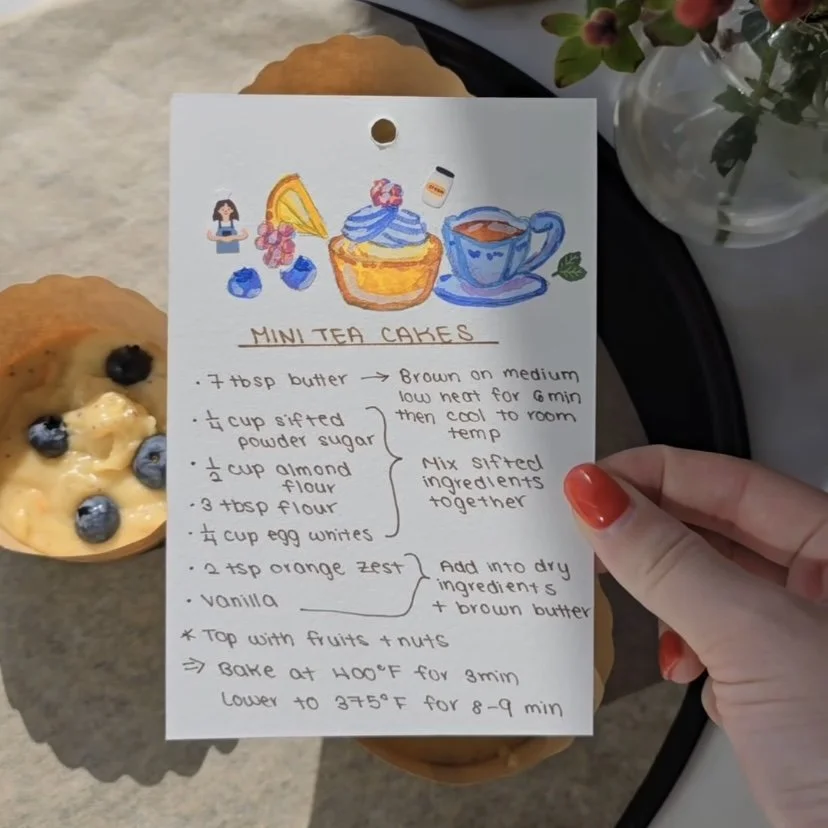 MINI TEA CAKES
· 7 tbsp butter → Brown on medium
low heat for 6 min
then cool to room
temp
· 1/4 cup sifted
powder sugar
· 1/2 cup almond
flour
· 3 tbsp flour
· 1/4 cup egg whites
Mix sifted
ingredients
together
· 2 tsp orange zest
· vanilla
Add into dry
ingredients
+ brown butter
* Top with fruits + nuts
⇒ Bake at 400°F for 3min
Lower to 375°F for 8-9 min